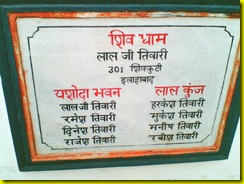 शिव धाम
लाल जी तिवारी
301 शिवकुटी
इलाहाबाद
यशोदा भवन लाल कुंज
लालजी तिवारी हरकेश तिवारी
रमेश तिवारी मुकेश तिवारी
दिनेश तिवारी मनीष तिवारी
राजेश तिवारी रबीश तिवारी